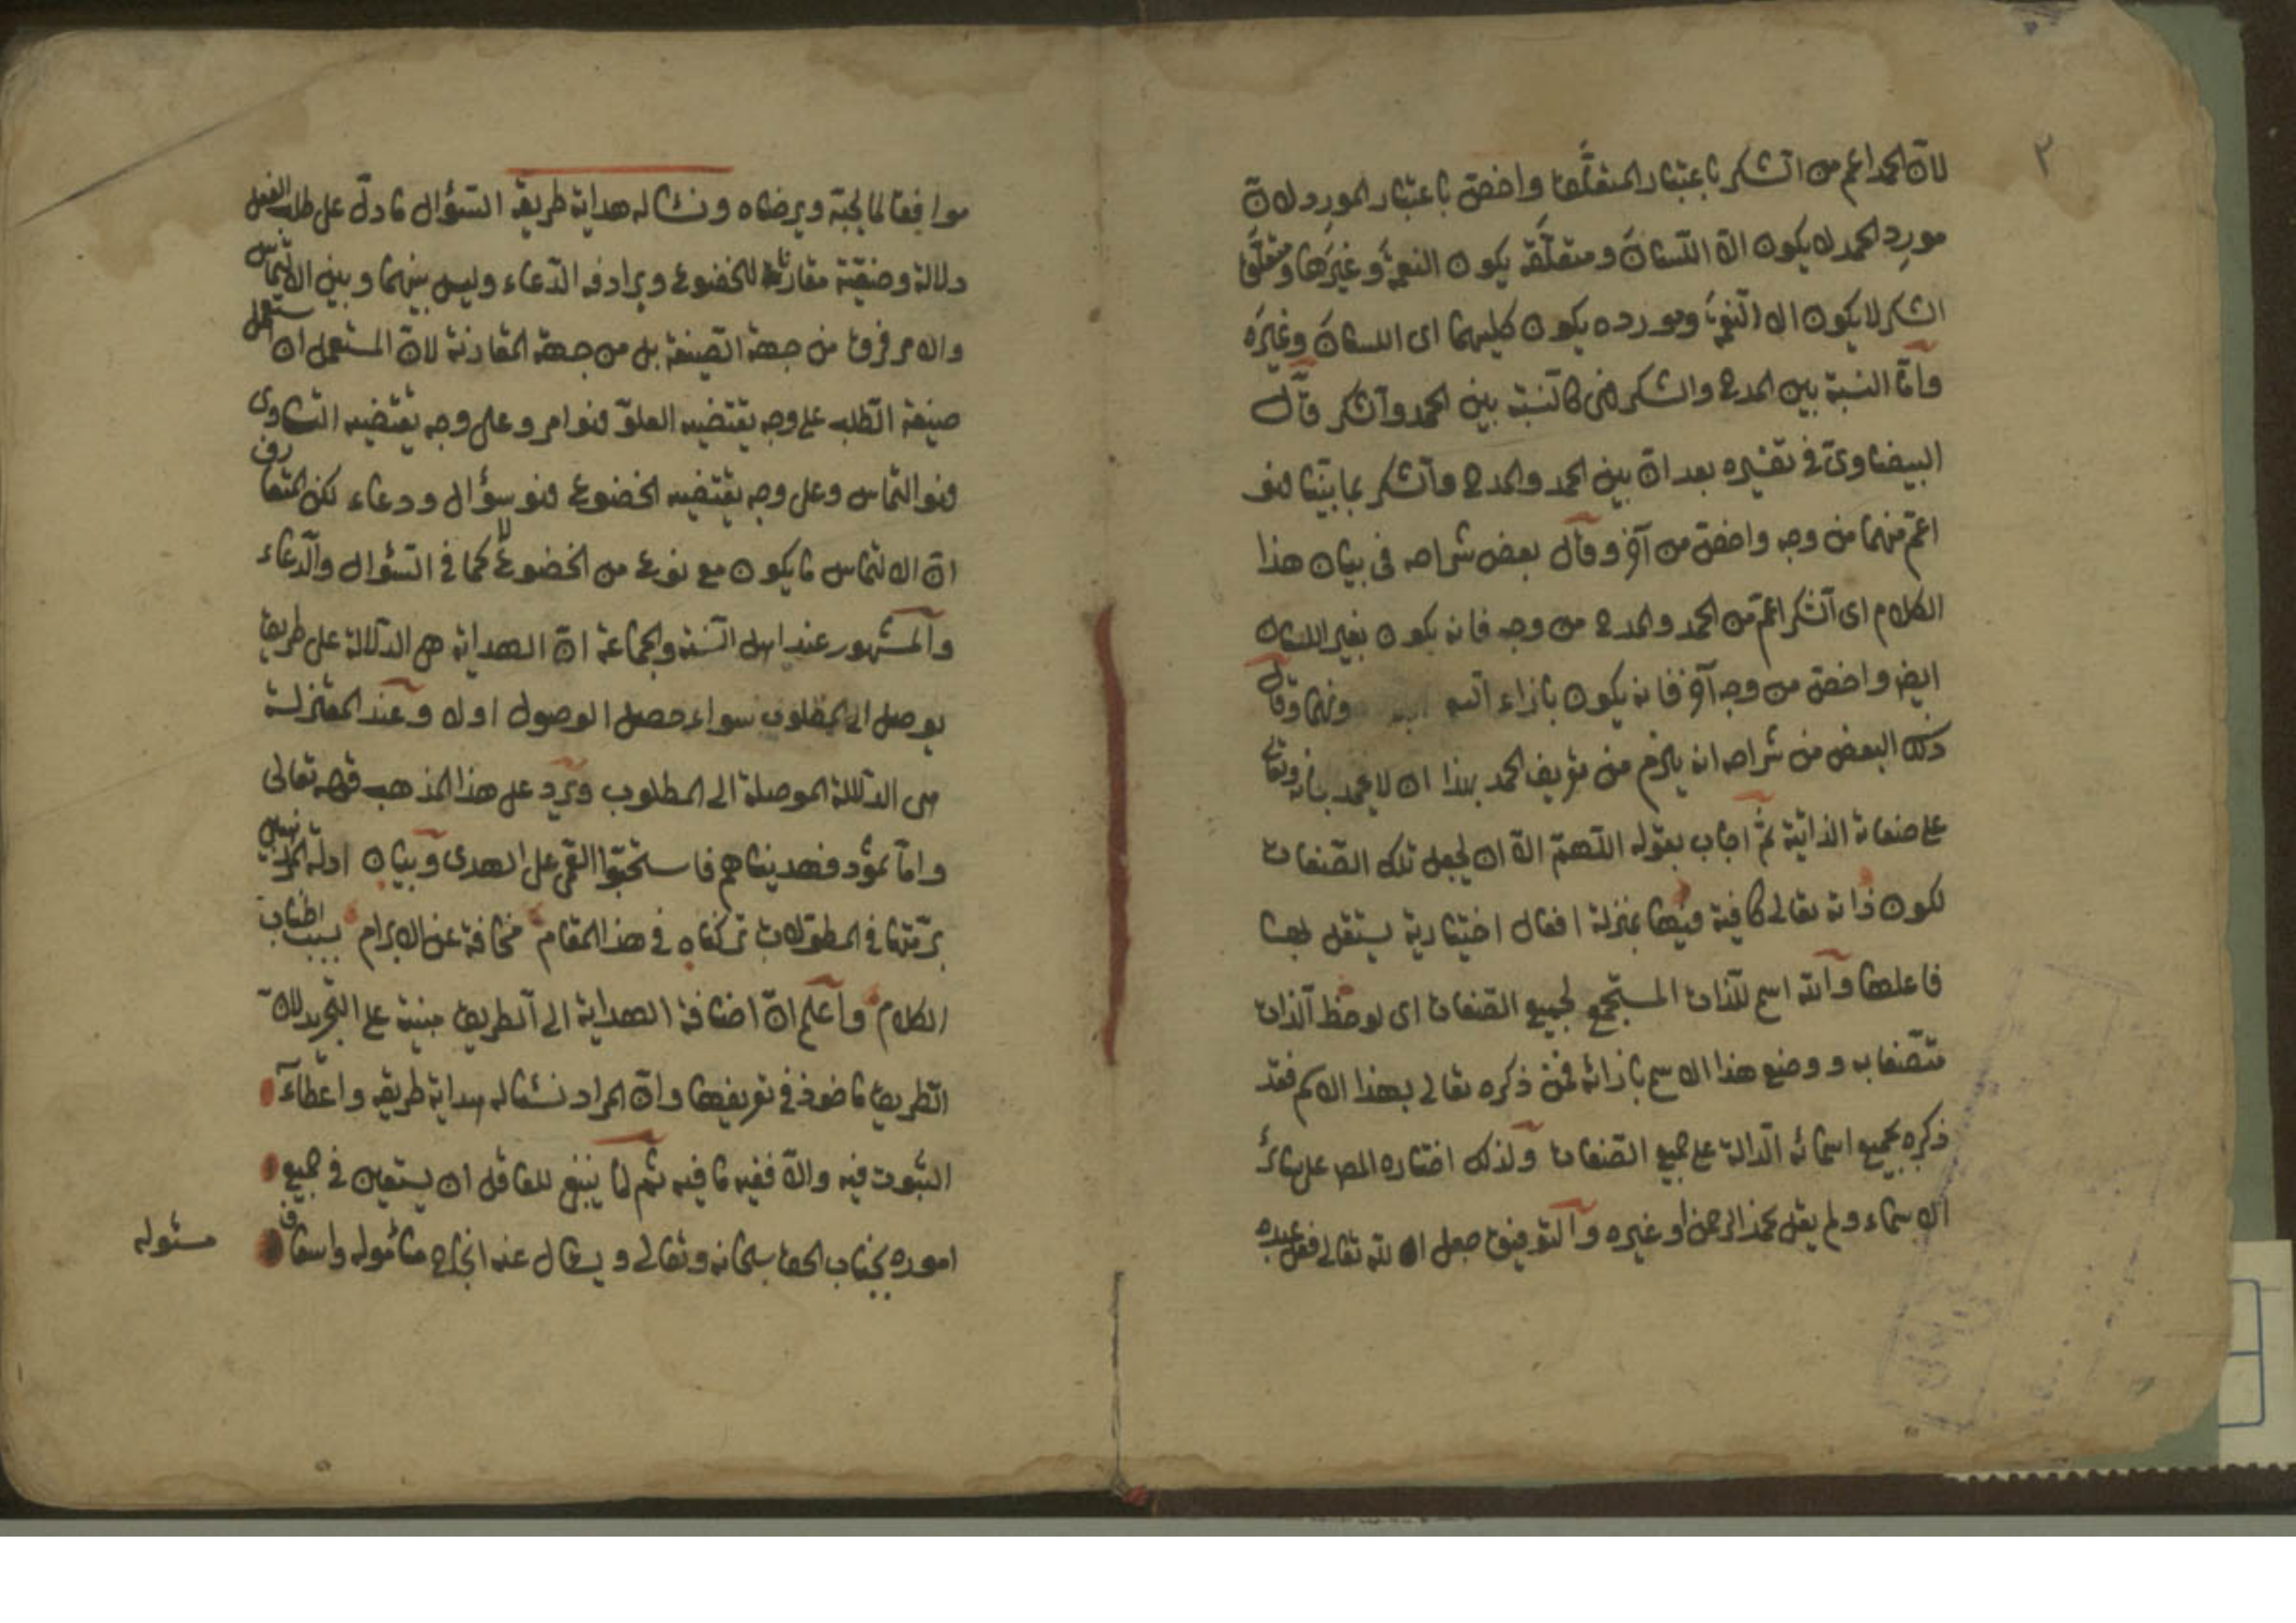 ٢
لانّ الحمد اعم من الشكر باعتبار المتعلَّق واخصّ باعتبار المورِد لانّ
مورِد الحمد لا يكون الّا اللّسانَ ومتعلّقَه يكون النعمةَ وغيرَها ومتعلَّق
الشكر لا يكون الا النّعمةَ ومورده يكون كليهما اى اللسانَ وغيرَه
وامّا النسبة بين المدح والشكر فهى كالنسبة بين الحمد والشكر قال
البيضاوىّ فى تفسيره بعد انّ بين الحمد والمدح والشكر بما بيّنا فهو
اعمّ منهما من وجه واخصّ من آخر وقال بعض شراحه فى بيان هذا
الكلام اى الشكر اعمّ من الحمد والمدح من وجه فانه يكون بغير اللسان
ايضا واخصّ من وجه آخر فانه يكون بازاء دونهما وقال
ذلك البعض من شراحه انه يلزم من تعريف الحمد بهذا ان لا يحمد سبحانه وتعالى
على صفاته الذاتية ثمّ اجاب بقوله اللّهمّ الّا ان يجعل تلك الصّفات
لكون ذاته تعالى كافية فيها بمنزلة افعال اختيارية يستقل بها
فاعلها والله اسم للذات المستجمع لجميع الصّفات اى لوحظ الذات
متّصفا به ووضع هذا الاسم بازائه فمن ذكره تعالى بهذا الاسم فقد
ذكره بجميع اسمائه الدّالة على جميع الصّفات ولذلك اختاره المص على سائر
الاسماء ولم يقل نحمد الرحمن او غيره والتوفيق جعل الله تعالى فعل عبده
موافقا لما يحبّه ويرضاه ونسئاله هداية طريقه السّؤال ما دلّ على طلب الفعل
دلالة وضعيّة مقارنة للخضوع ويرادفه الدّعاء وليس بينهما وبين الالتماس
والامر فرق من جهة الصّيغة بل من جهة المقارنة لانّ المستعمل ان استعمل
صيغة الطّلب على وجه يقتضيه العلوّ فهو امر وعلى وجه يقتضيه التساوى
فهو التماس وعلى وجه يقتضيه الخضوع فهو سؤال ودعاء لكن المتعارف
انّ الالتماس ما يكون مع نوع من الخضوع لا كما فى السّؤال والدّعاء
والمشهور عند اهل السّنة والجماعة انّ الهداية هى الدّلالة على طريق
يوصل الى المطلوب سواء حصل الوصول اولا وعند المعتزلة
هى الدّلالة الموصلة الى المطلوب ويرد على هذا المذهب قوله تعالى
وامّا ثمود فهديناهم فاستحبّوا العمى على الهدى وبيان ادلة المذهبين
برمّتها فى المطوّلات تركناه فى هذا المقام مخافة عن الابرام بسبب اطناب
الكلام واعلم انّ اضافة الهداية الى الطريق مبنية على التجريد لانّ
الطّريق ماخوذ فى تعريفها وانّ المراد نسئاله هداية طريقه واعطاءَ
الثبوت فيه والّا ففيه ما فيه ثم لمّا ينبغى للعاقل ان يستعين فى جميع
اموره بجناب الحق سبحانه وتعالى ويسئال عنه انجاح مأموله واسعاف
مسئوله